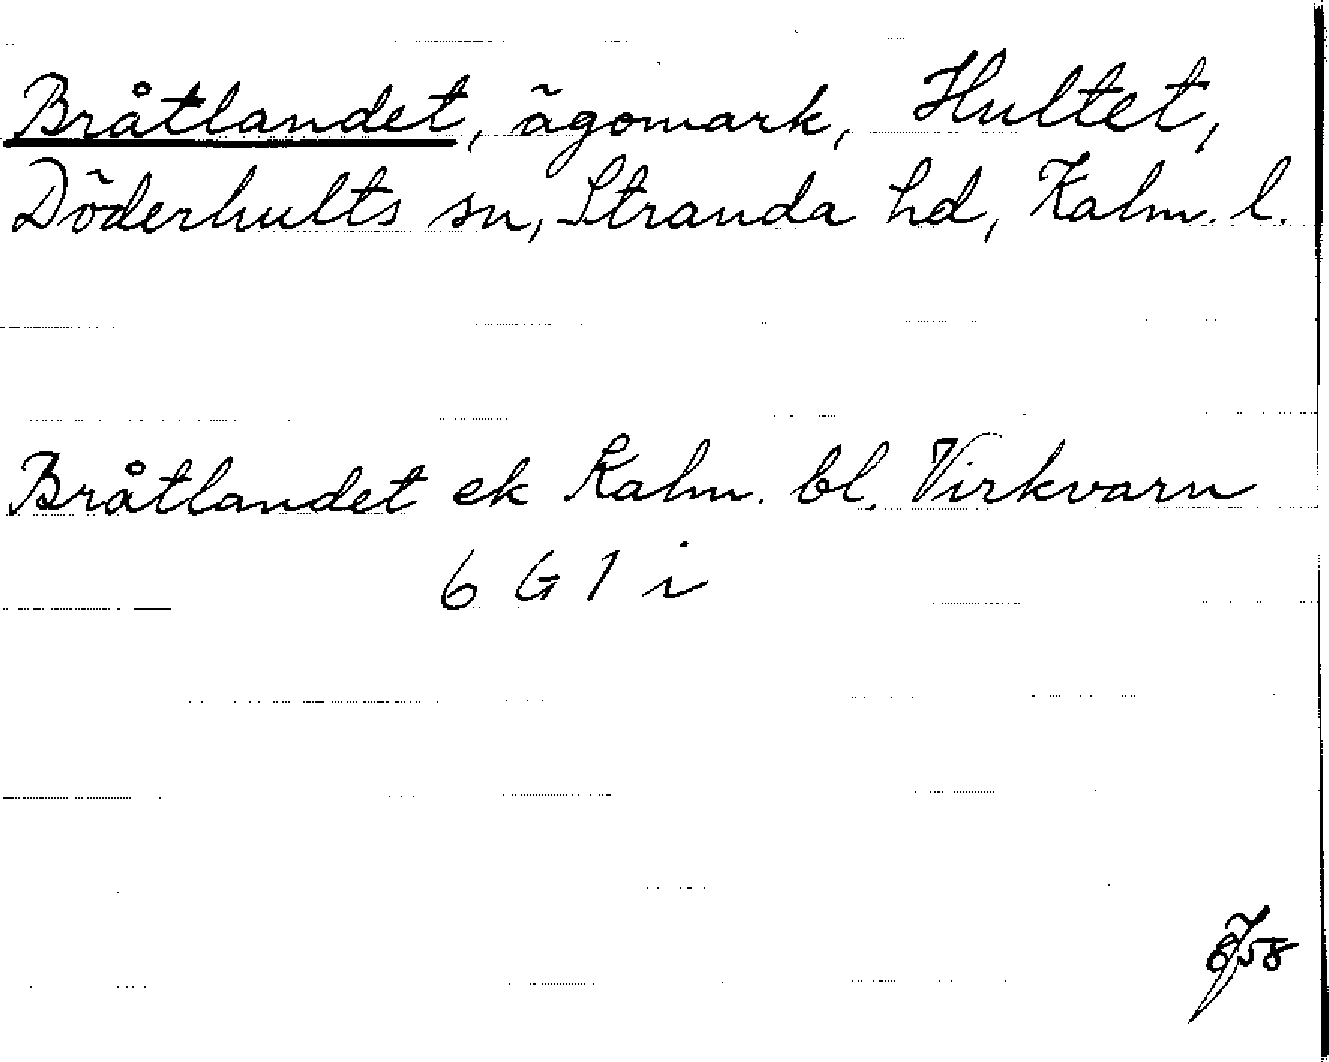 Bråtlandet, ägomark, Hultet,
Döderhults sn, Stranda hd, Kalm. l.
Bråtlandet ek Kalm. bl. Virkvarn
6 G 1 i